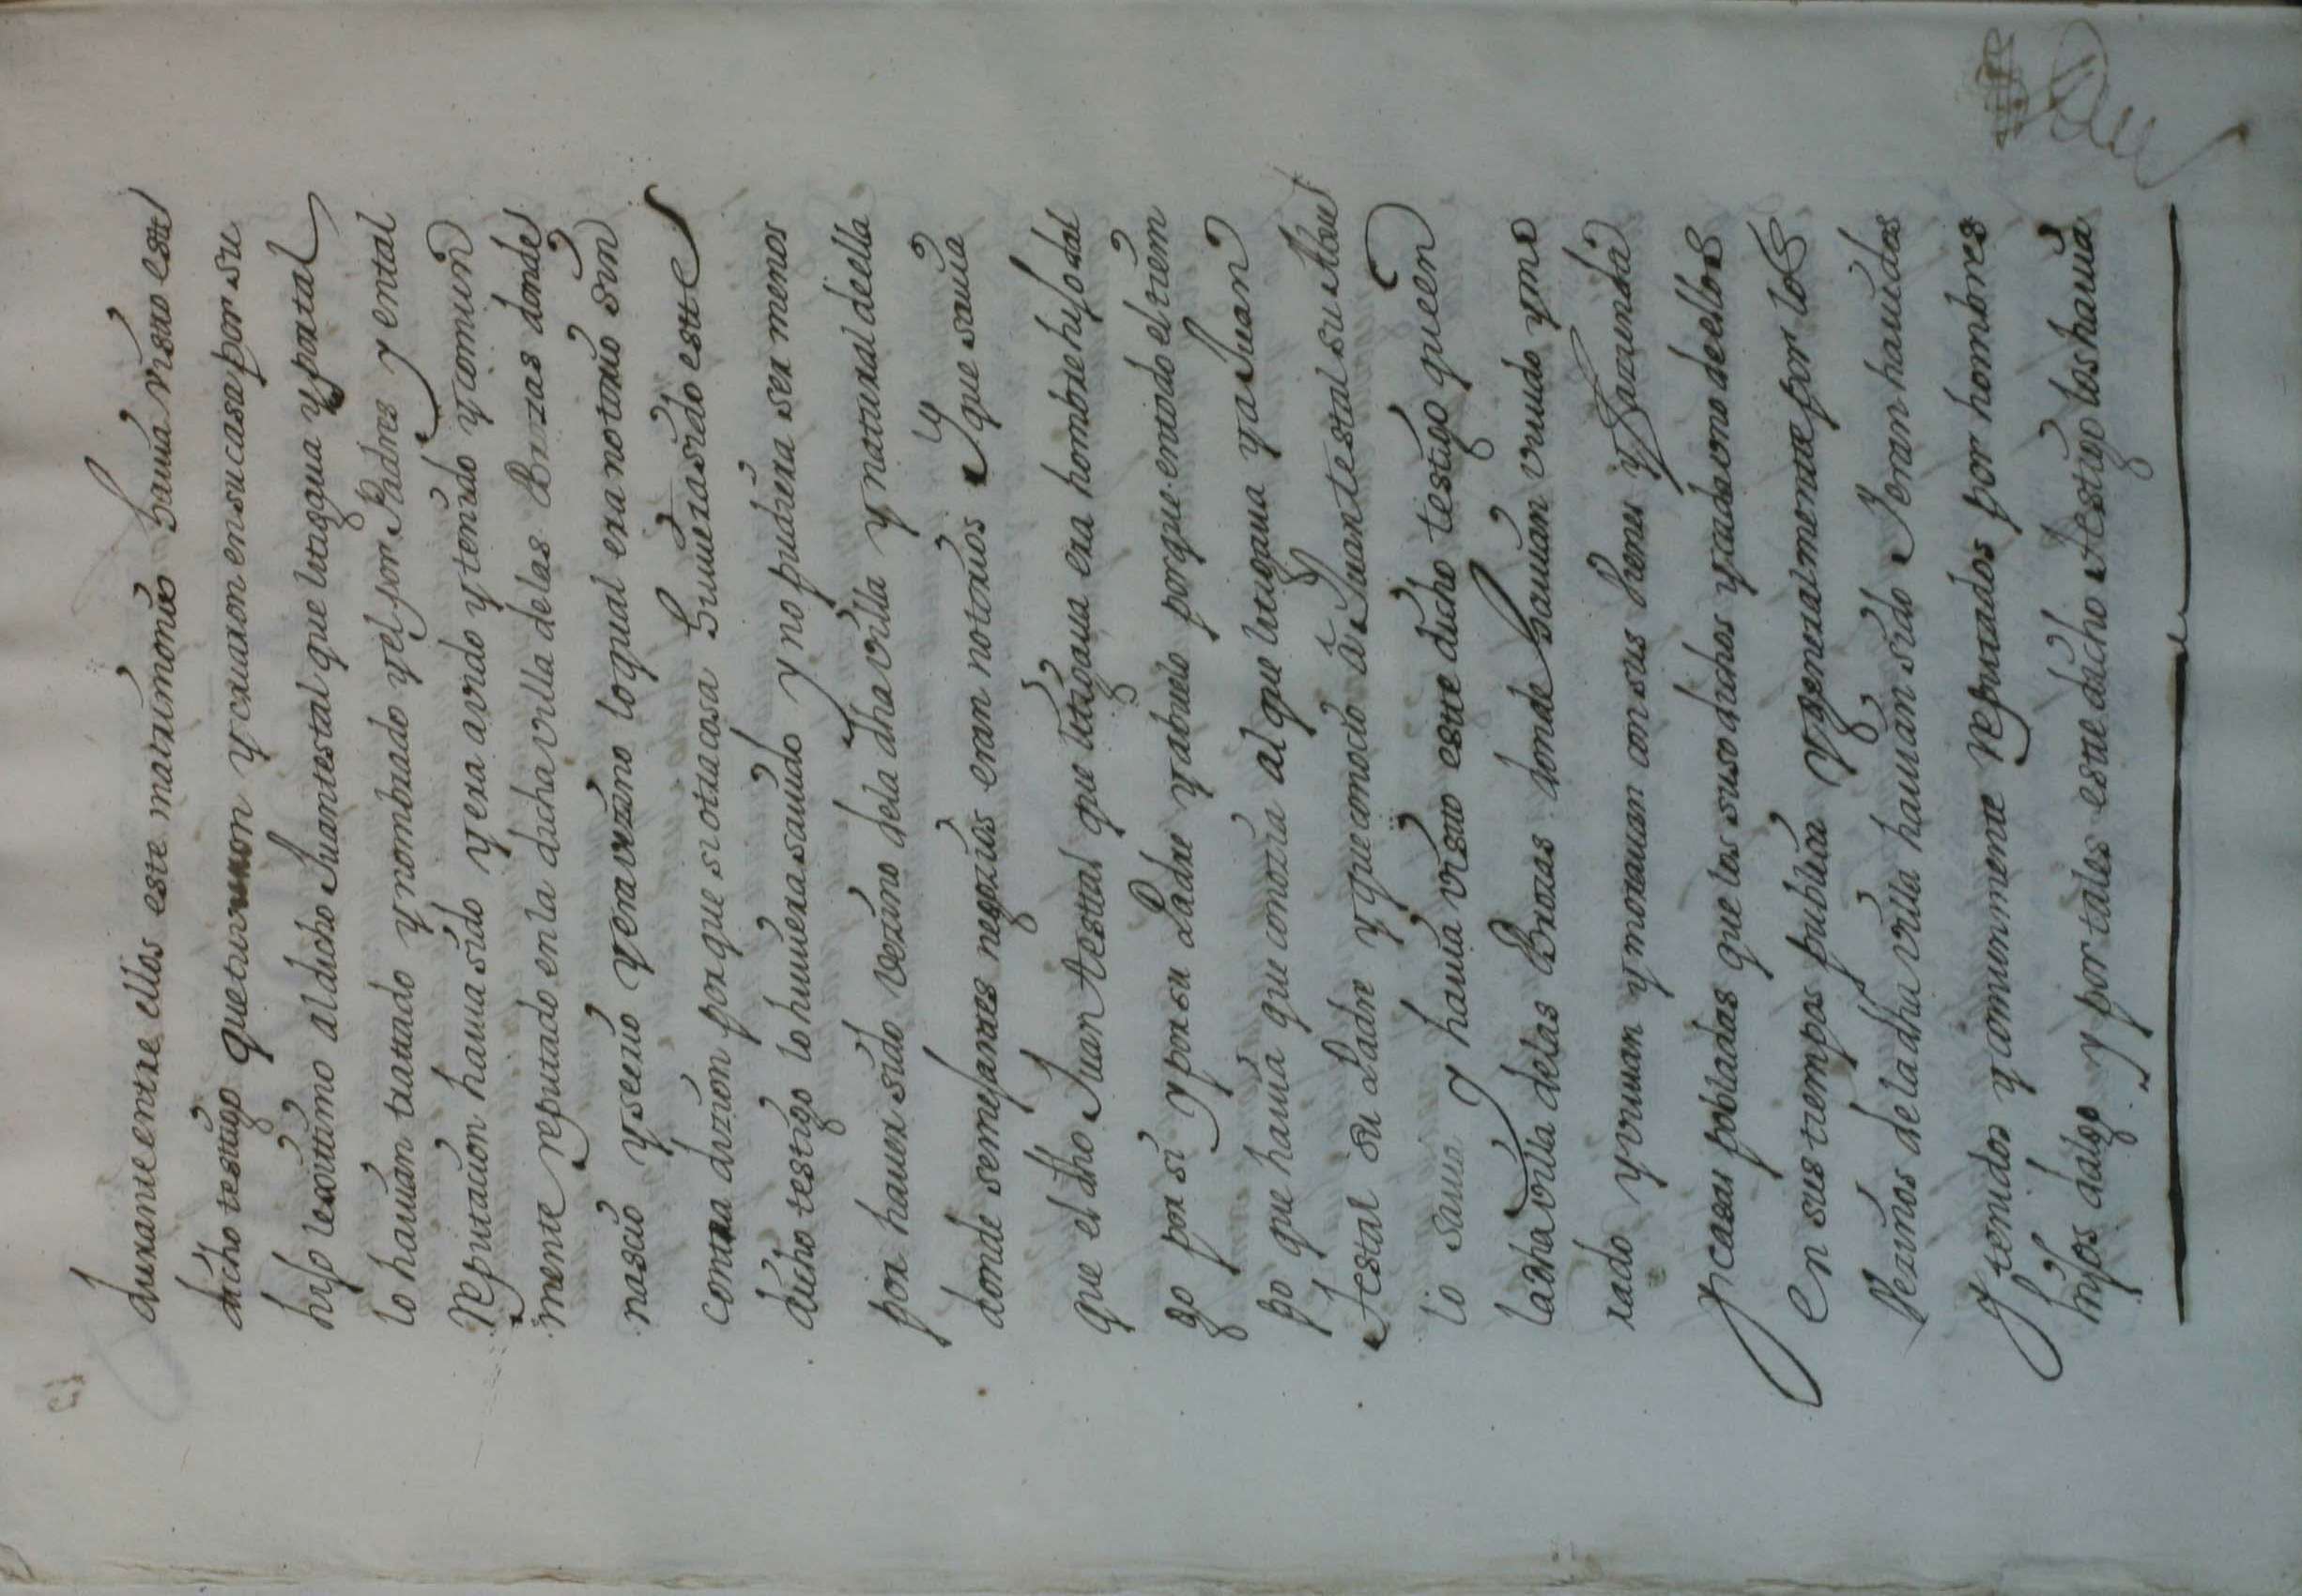 duranteentre ellos este matrimonio hauia visto este
dicho testigo que tuvieron y criaron en su casa por su
hijo lexitimo al dicho Juantestal que litigaua y por tal
lo hauian trattado y nombrado y el por Padres y en tal
Reputacion hauia sido y era avido y tenido y comun
mente reputado en la dicha villa de las Brozas donde
nascio y seruio y era vezino lo qual era notorio sin
contradizion porque si otra cosa huuiera sido este
dicho testigo lo huuiera sauido y no pudiera ser menos
por hauer sido vezino de la dha villa y natural de ella
donde semejantes negozios eran notorios Y que sauia
que el dho Juan testal que litigaua era hombre hijo dal
go por si y por su Padre y abuelo porque en todo el tiem
po que hauia que conozia al que litigaua y a Juan
testal su Padre y que conocio a Juan testal su Abue
lo sauia y hauia visto este dicho testigo que en
la dha villa de las Brozas donde hauian viuido y mo
rado y viuian y morauan con sus bienes y hazienda
y casas pobladas que los suso dichos y cada vno de ellos
en sus tiempos publica y generalmente por los
Vezinos de la dha villa hauian sido Y eran hauidos
y tenidos y comunmente Reputados por hombres
hijos dalgo y por tales este dicho testigo los hauia